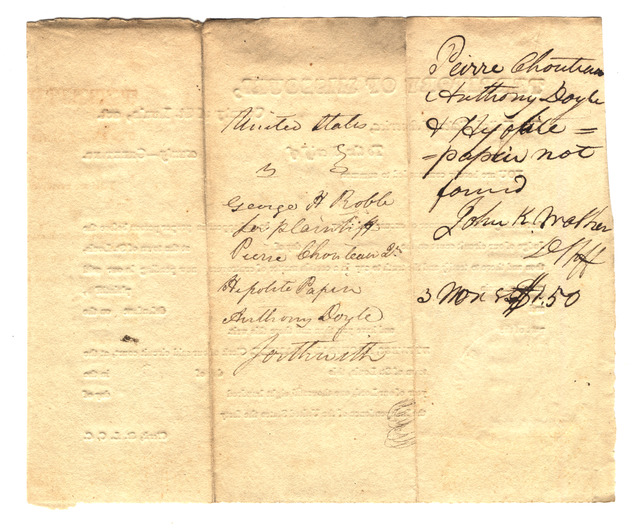 United States
vs
George H Robb
for plaintiff
Pierre Chouteau Jr
Hipolite Papin
Anthony Doyle
forthwith
Pierre Chouteau
Anthony Doyle
& Hypolite =
=papin not
found
John K. Walker
D Shff
3 Non est $1.50